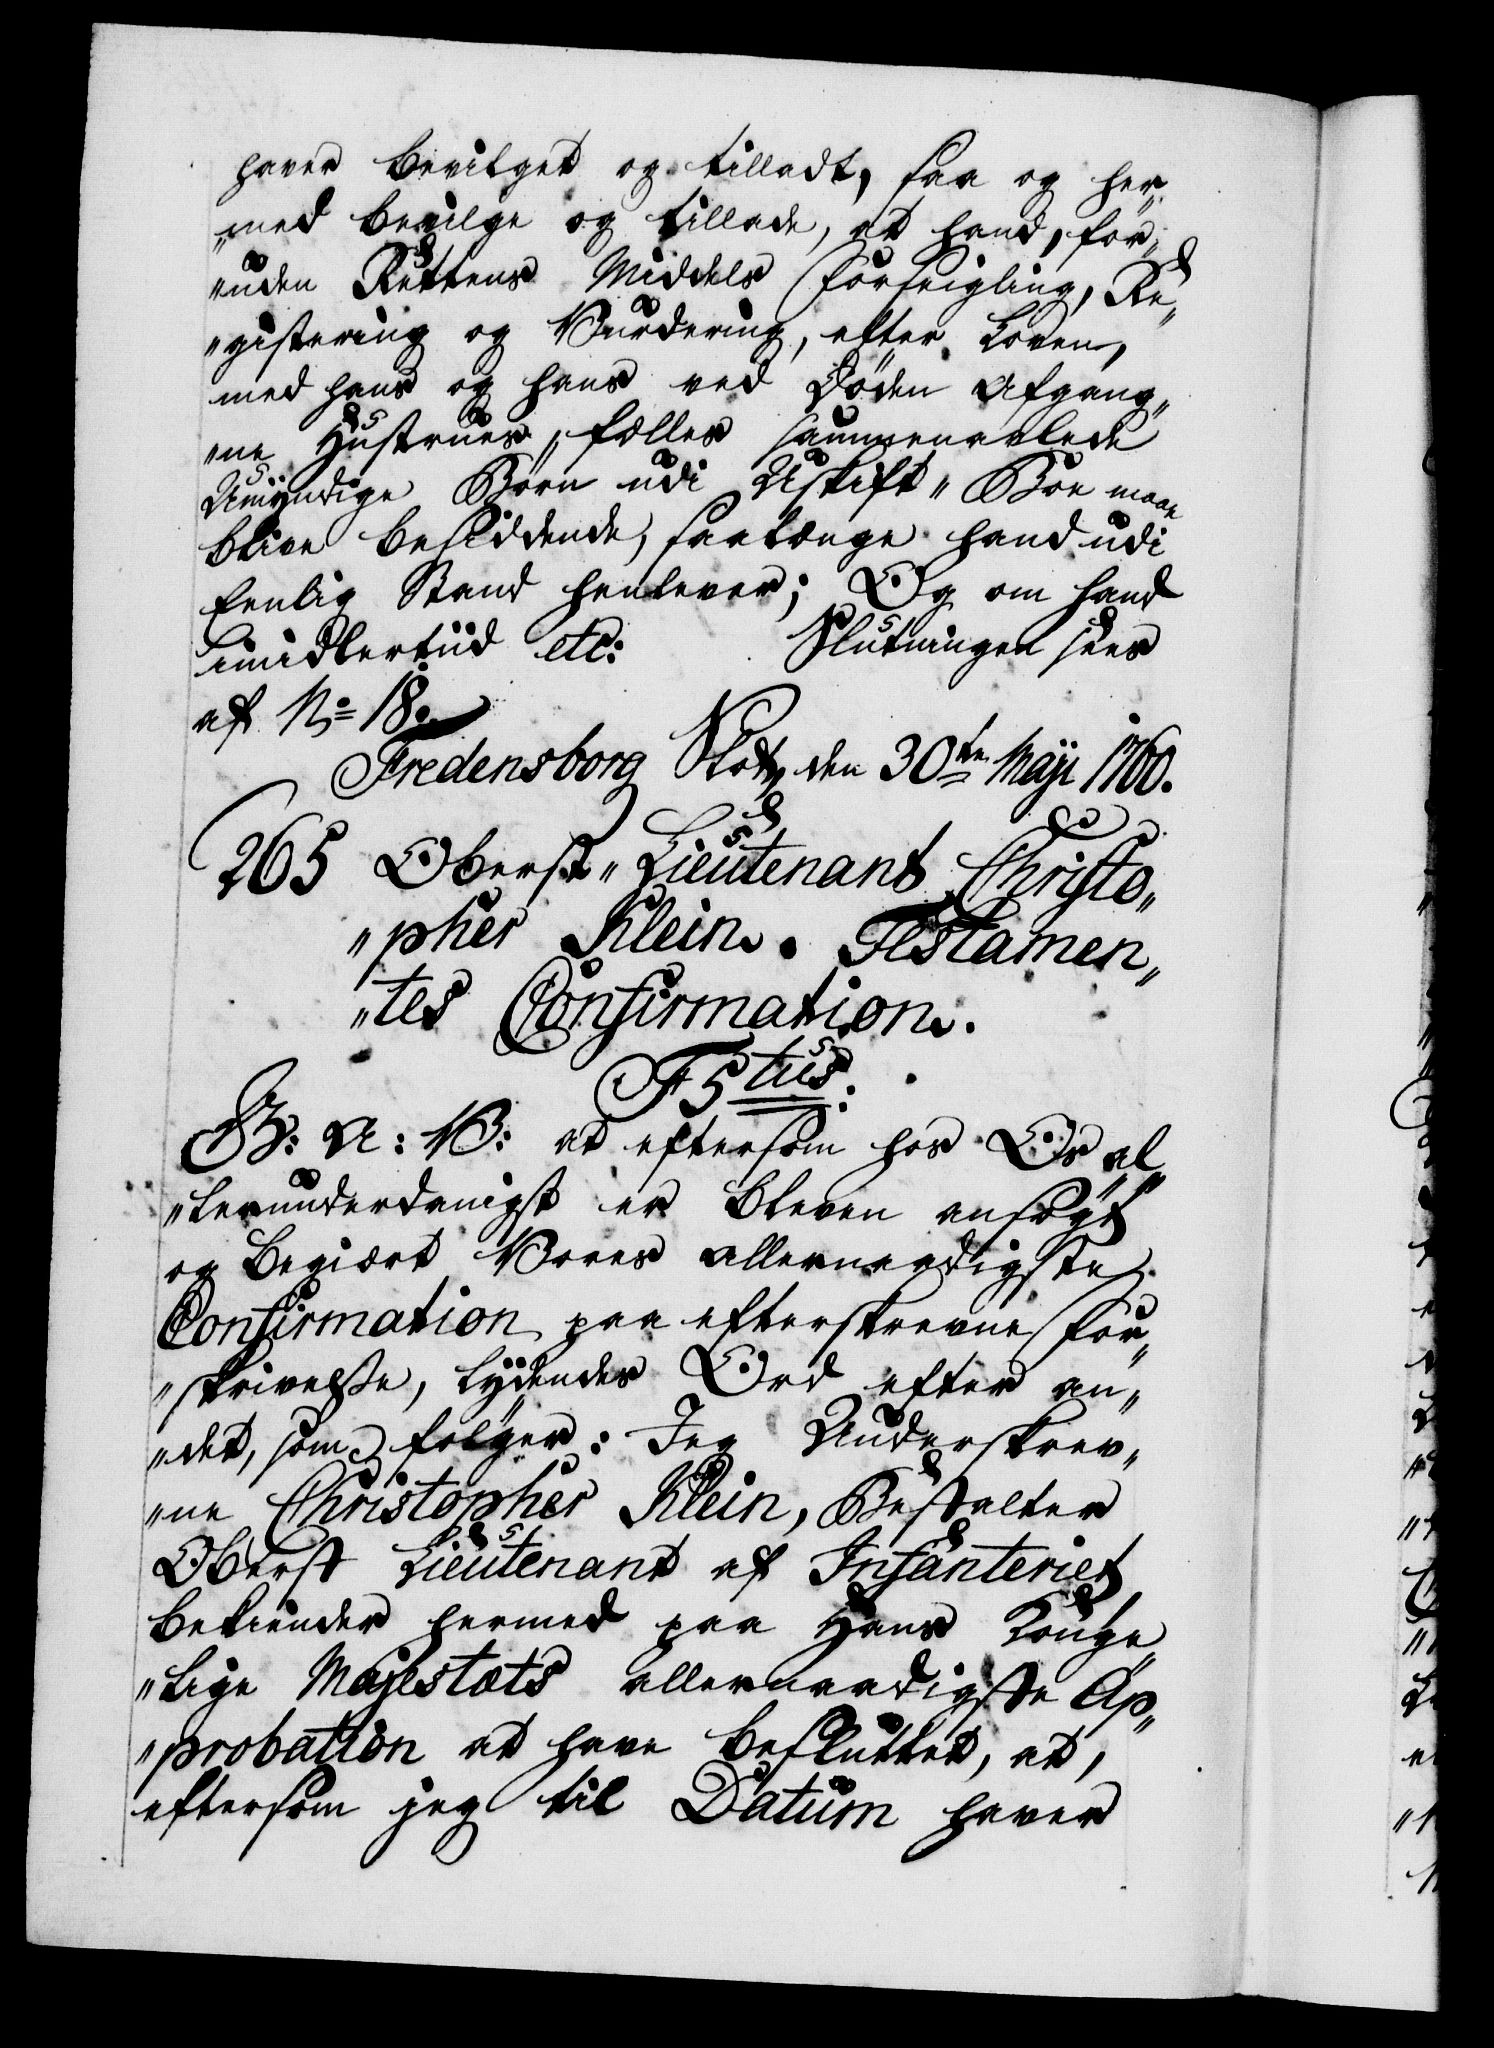 haver bevilget og tilladt, saa og her„
„med bevilge og tillade, at hand, for„
„uden Rettens Middels Forseigling, Re„
„gistering og Vurdering, efter Loven,
med hans og hans ved Døden Afgang„
„ne Hustrues, fælles sammenavlede
Umÿndige Børn udi Uskift„ Boe maae
blive besiddende, saalænge hand udi
Eenlig Stand henlever; Og om hand
imidlertiid etc: Slutningen sees
af No 18.
Fredensborg Slot, den 30te Maji 1760.
265 Oberst„ Lieutenant Christo„
„pher Klein. Testamen„
„tes Confirmation.
F 5tus:
G: A: V: at eftersom hos Os al„
„lerunderdanigst er bleven ansøgt
og begiært Vores allernaadigste
Confirmation paa efterskrevne For„
„skrivelse, lÿdendes Ord efter an„
„det, som følger: Jeg Underskrev„
„ne Christopher Klein, Bestalter
Oberst Lieutenant af Infanteriet
bekiender hermed paa Hans Konge„
„lige Majestæts allernaadigste Ap„
„probation at have besluttet, at,
eftersom jeg til Datum haver